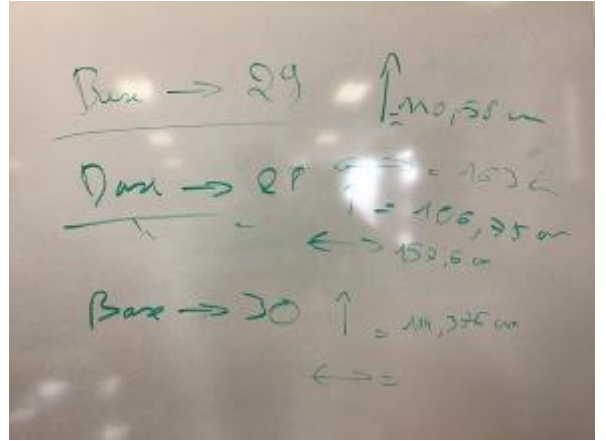 Base → 29 ↑ = 110,56 cm
Base → 28 ↔ = 163 cm
↑ = 106,75 cm
↔ 152,6 cm
Base → 30 ↑ = 114,375 cm
↔ =